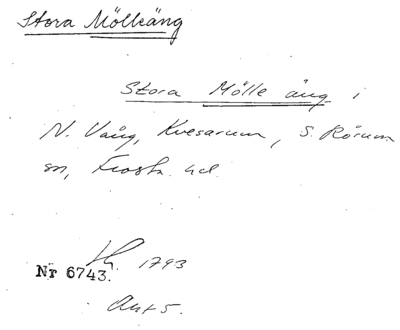 Stora Mölleäng
Stora Mölle äng i
N. Vång, Kvesarum, S. Rörum
sn, Frosta hd.
Nr 6743. 1793
Akt 5.